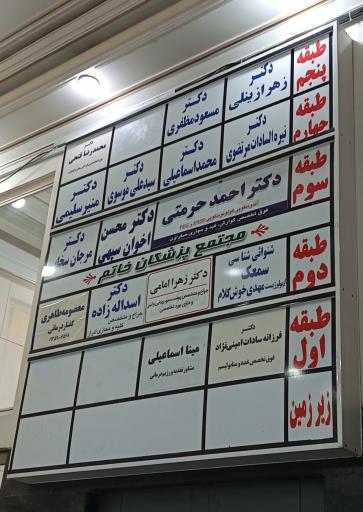 طبقه پنجم
دکتر زهرا زینلی
دکتر مسعود مظفری
دکتر محمدرضا فتحی
طبقه چهارم
دکتر نیره السادات مرتضوی
دکتر محمد اسماعیلی
دکتر سیدعلی موسوی
دکتر منیر سلیمی
طبقه سوم
دکتر احمد حرمتی
فوق تخصص گوارش، کبد و مجاری صفراوی
دکتر محسن اخوان سپهی
دکتر مرجان سخایی
مجتمع پزشکان خاتم
طبقه دوم
شنوائی شناسی
سمعک
مهدی خوش کلام
دکتر زهرا امامی
دکتر اسداله زاده
جراح و متخصص
معصومه طاهری
گفتاردرمانی
طبقه اول
دکتر
فرزانه سادات امینی نژاد
فوق تخصص غدد و متابولیسم
مینا اسماعیلی
مشاور تغذیه و رژیم درمانی
زیرزمین